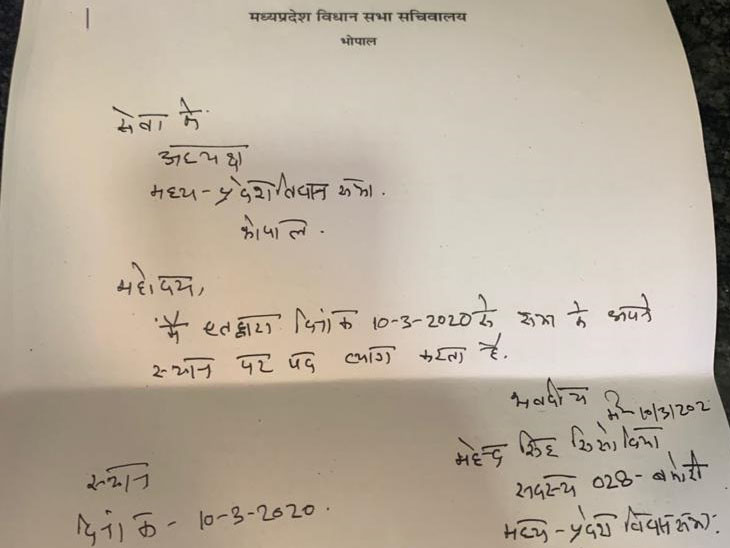 मध्यप्रदेश विधान सभा सचिवालय
भोपाल
सेवा में
अध्यक्ष
मध्य-प्रदेश विधान सभा.
भोपाल.
महोदय,
मैं एतद्वारा दिनांक 10-3-2020 से सभा के अपने
स्थान पर पद त्याग करता हूँ.
भवदीय
10/3/202
महेन्द्र सिंह सिसोदिया
स्थान
सदस्य 028- बमोरी
दिनांक - 10-3-2020.
मध्य-प्रदेश विधान सभा.